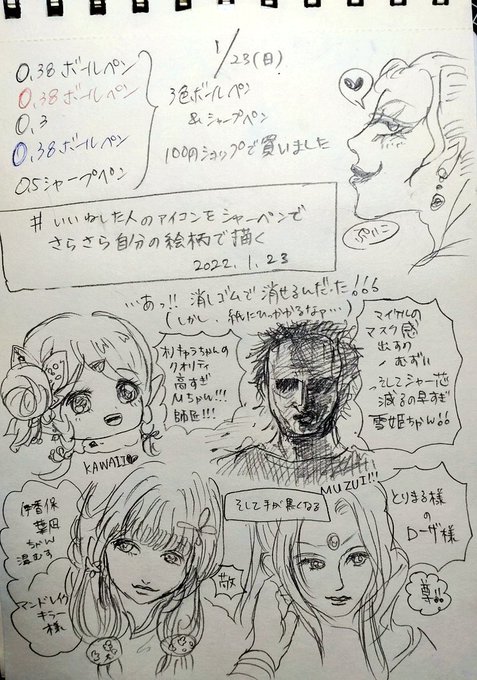 1/23(日)
0.38 ボールペン
0.38 ボールペン
0.3
0.38 ボールペン
0.5 シャープペン
3色ボールペン
&シャープペン
100のショップで買いました
ぷにこ
#いいねした人のアイコンをシャーペンで
さらさら自分の絵柄で描く
2022.1.23
...あっ!! 消しゴムで消せるんだった!!!
(しかし、紙にひっかかるなァ...)
オリキャラちゃんの
クオリティ
高すぎ
Mちゃん!!!
師匠!!!
KAWAII
マイケルの
マスク感
出すの
むずい
そしてシャー芯
減るの早すぎ
雪姫ちゃん!!
MUZUI!!!
そして手が黒くなる
伊香保
葉月
ちゃん
温むす
マンドレイク
キラー
様
敬
とりまる様
の
ローザ様
尊!!